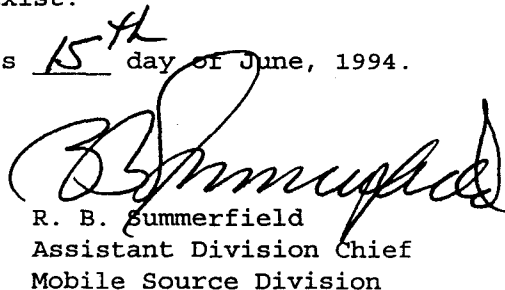 xist.
s 15th day of June, 1994.
R B Summerfield
R. B. Summerfield
Assistant Division Chief
Mobile Source Division